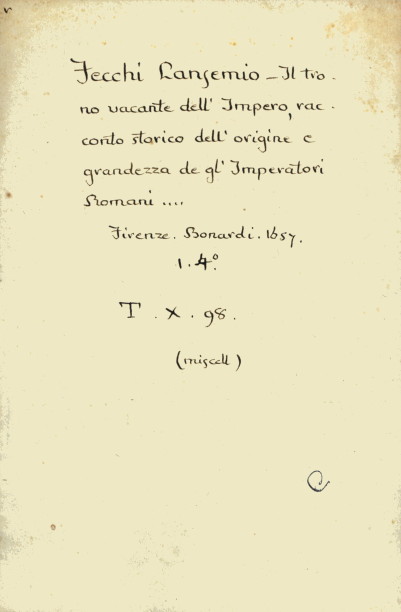 v
Fecchi Lansemio - Il tro-
no vacante dell' Impero, rac-
conto storico dell' origine e
grandezza de gl' Imperatori
Romani ....
Firenze. Bonardi. 1657.
1. 4º.
T. X. 98.
(miscell)
C